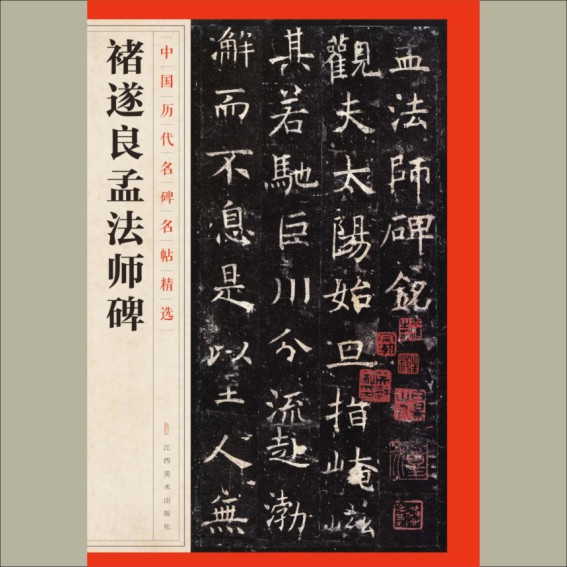 中国历代名碑名帖精选
褚遂良孟法师碑
江西美术出版社
孟法師碑銘
觀夫太陽始旦指崦嵫
其若馳巨川分流赴渤
澥而不息是以至人無